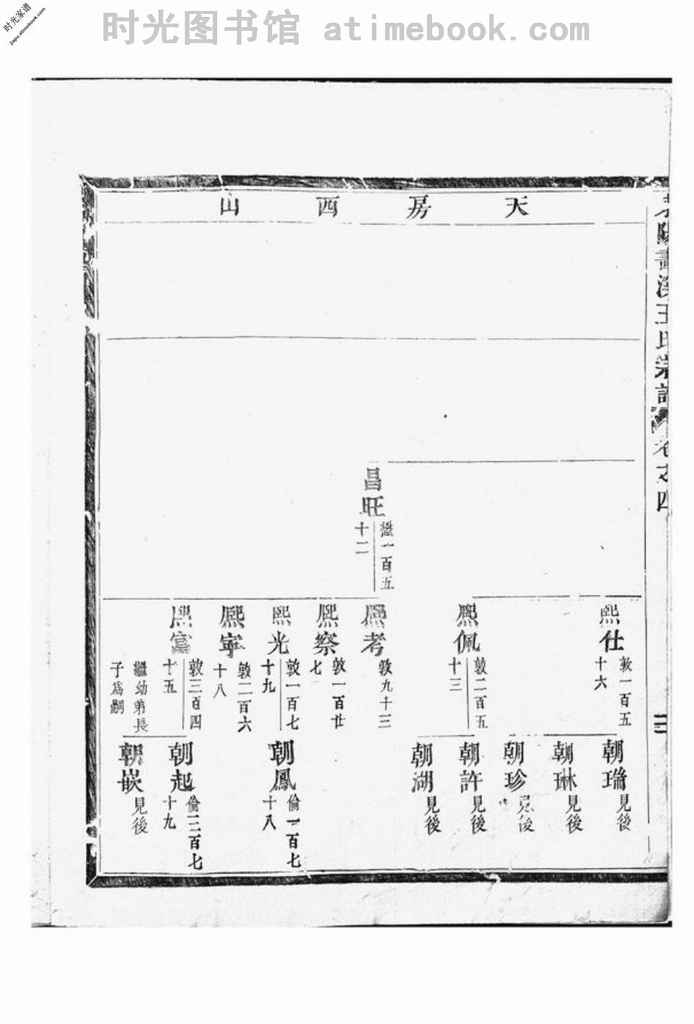 时光图书馆 atimebook.com
时光家谱
天房西山
王氏宗譜
卷之四
昌旺
繼一百五
十二
熙仕
敦一百五
十六
熙佩
敦二百五
十三
熙考
敦九十三
熙察
敦一百廿
七
熙光
敦一百七
十九
熙寧
敦二百六
十八
熙富
敦三百四
十五
繼幼弟長
子為嗣
朝瑞
見後
朝琳
見後
朝珍
見後
朝許
見後
朝湖
見後
朝鳳
倫一百七
十八
朝起
倫二百七
十九
朝嵌
見後